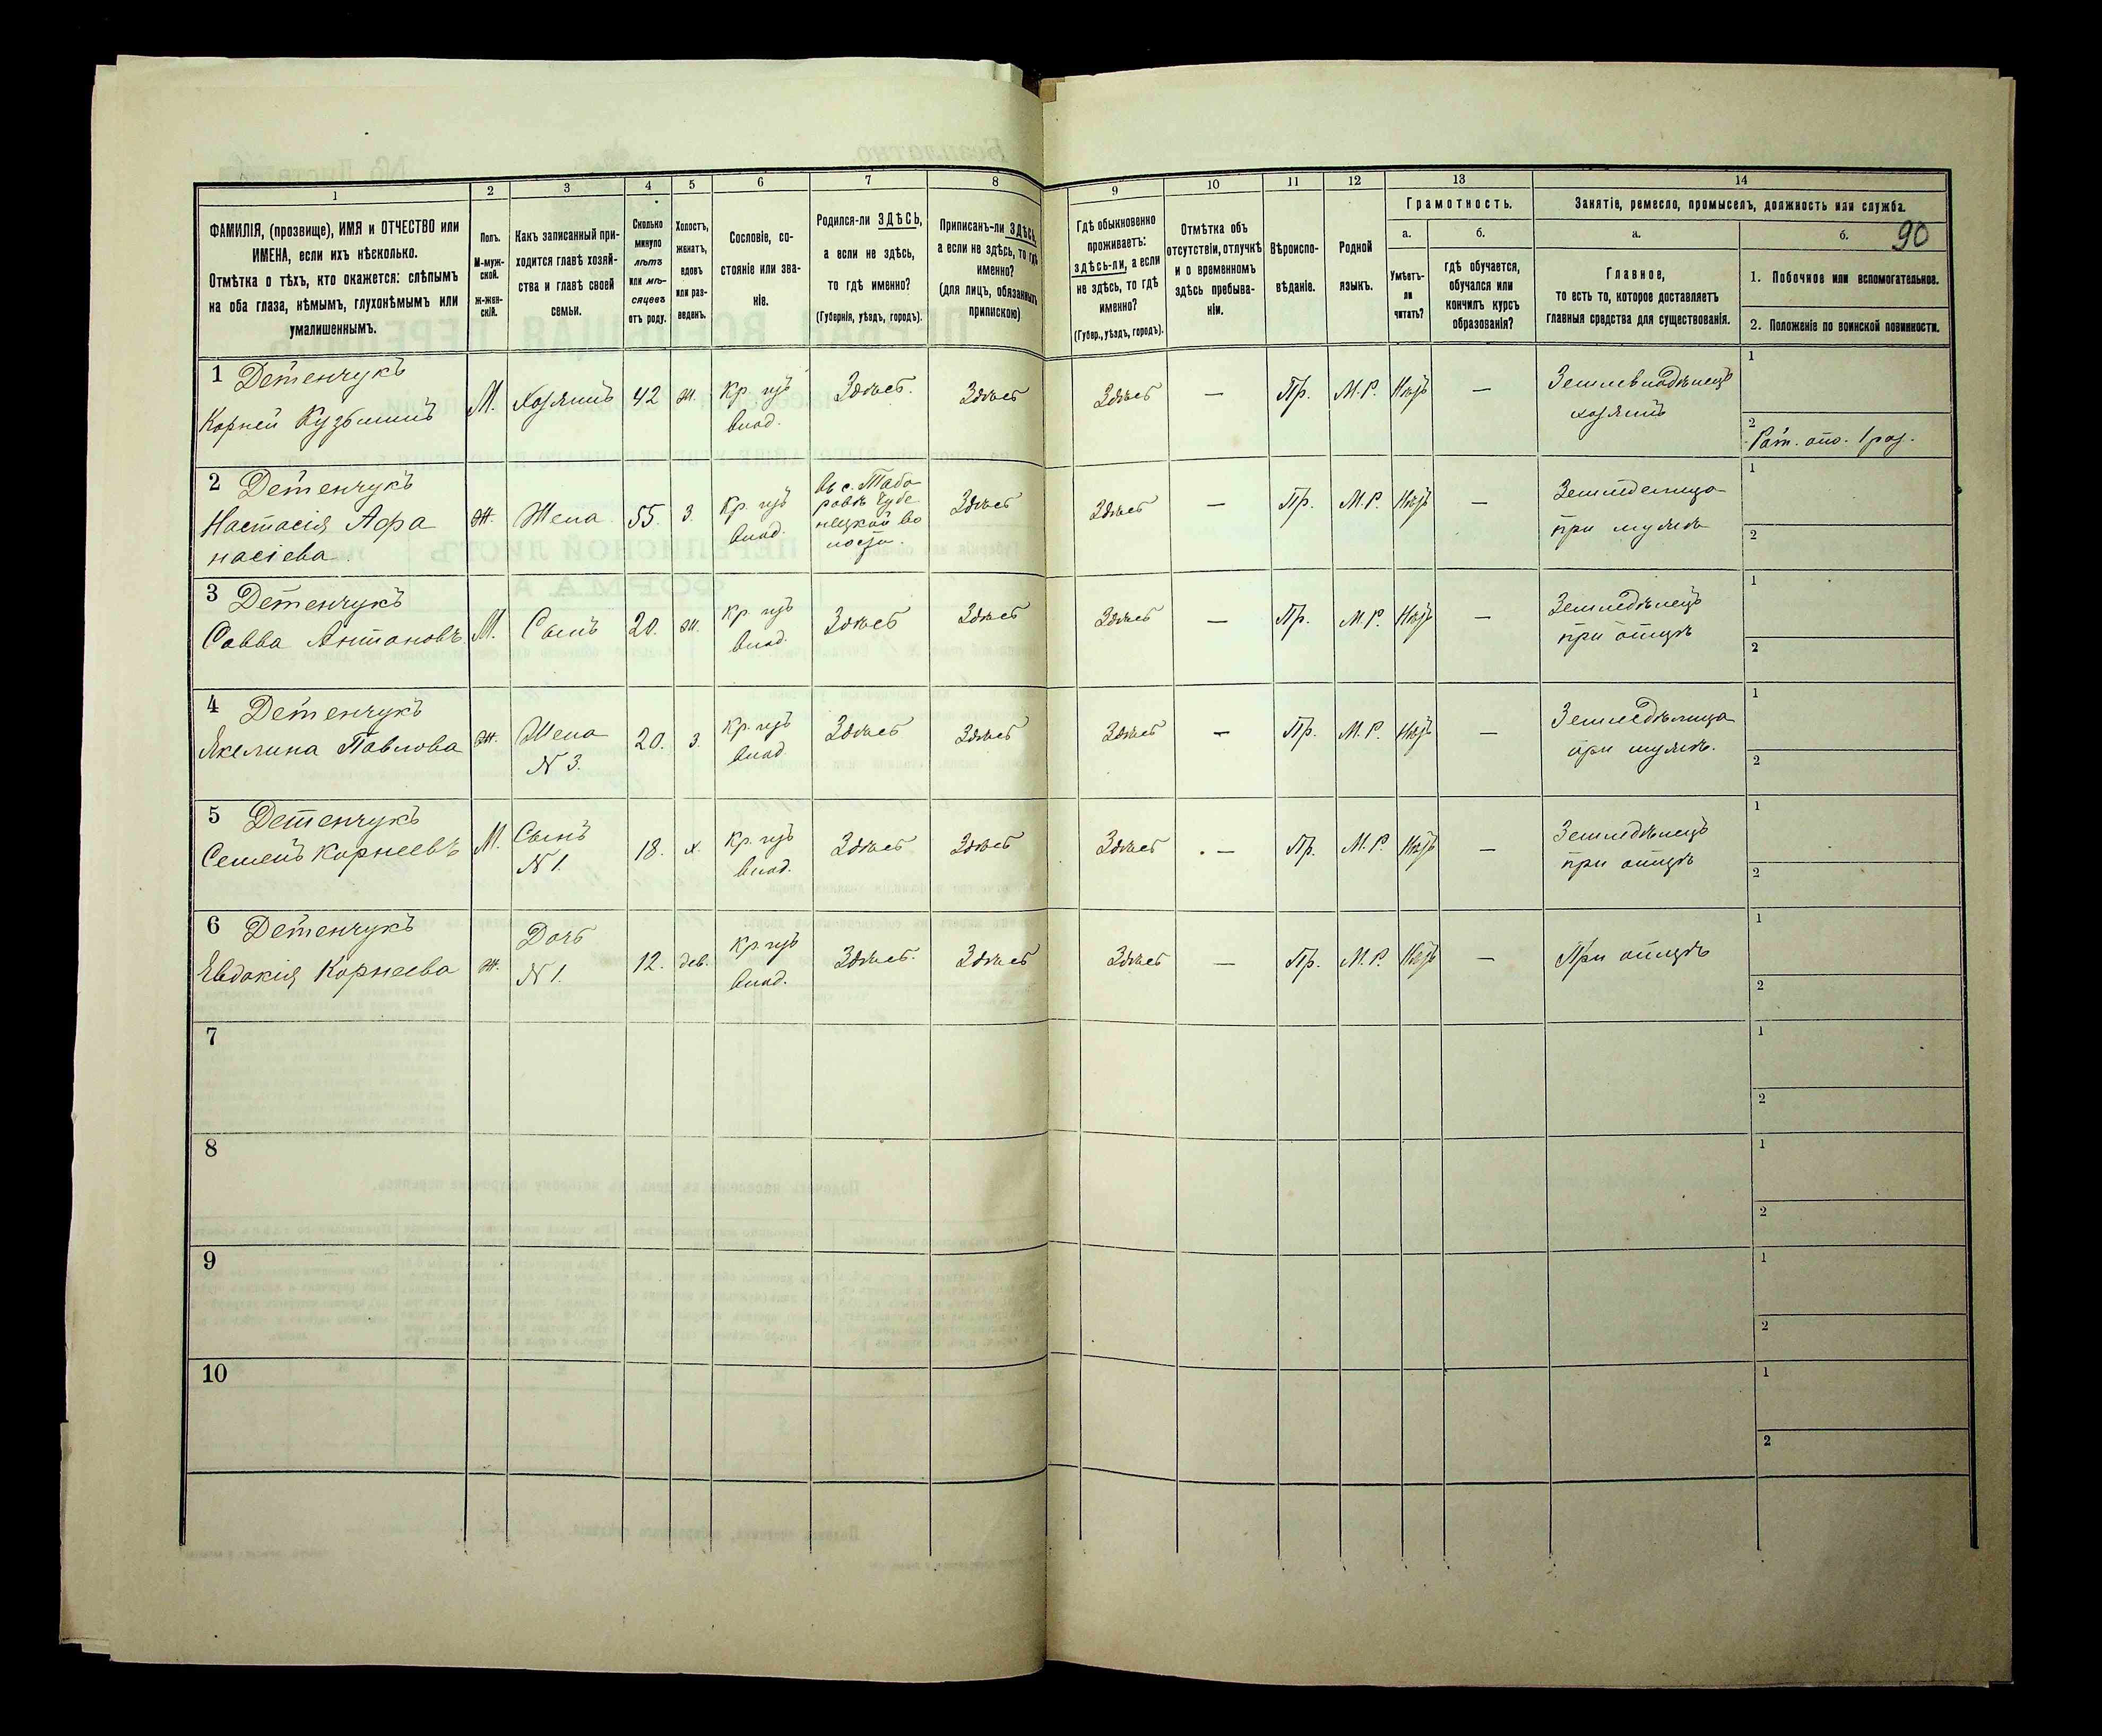 90
1
2
3
4
5
6
7
8
9
10
11
12
13
14
ФАМИЛІЯ, (прозвище), ИМЯ и ОТЧЕСТВО или
ИМЕНА, если ихъ нѣсколько.
Отмѣтка о тѣхъ, кто окажется: слѣпымъ
на оба глаза, нѣмымъ, глухонѣмымъ или
умалишеннымъ.
Полъ.
М-муж-
ской.
ж-жен-
скій.
Какъ записанный при-
ходится главѣ хозяй-
ства и главѣ своей
семьи.
Сколько
минуло
лѣтъ
или мѣ-
сяцевъ
отъ роду.
Холостъ,
женатъ,
вдовъ
или раз-
веденъ.
Сословіе, со-
стояніе или зва-
ніе.
Родился-ли ЗДѢСЬ,
а если не здѣсь,
то гдѣ именно?
(Губернія, уѣздъ, городъ).
Приписанъ-ли ЗДѢСЬ,
а если не здѣсь, то гдѣ
именно?
(для лицъ, обязанныхъ
припискою)
Гдѣ обыкновенно
проживаетъ:
здѣсь-ли, а если
не здѣсь, то гдѣ
именно?
(Губер., уѣздъ, городъ).
Отмѣтка объ
отсутствіи, отлучкѣ
и о временномъ
здѣсь пребыва-
ніи.
Вѣроиспо-
вѣданіе.
Родной
языкъ.
Грамотность.
а.
Умѣетъ-
ли
читать?
б.
гдѣ обучается,
обучался или
кончилъ курсъ
образованія?
Занятіе, ремесло, промыселъ, должность или служба.
а.
Главное,
то есть то, которое доставляетъ
главныя средства для существованія.
б.
1. Побочное или вспомогательное.
2. Положеніе по воинской повинности.
1 Детенчукъ
Корней Кузьминъ
М.
Хозяинъ
42
ж.
Кр. изъ
влад.
Здѣсь.
Здѣсь
Здѣсь
—
Пр.
М.Р.
Нѣтъ
—
Землевладѣлецъ
хозяинъ
1
2
Рат. опо. 1 раз.
2 Детенчукъ
Настасія Афа
насіева
Ж.
Жена
55.
З.
Кр. изъ
влад.
Въ с. Табо
ровкѣ Чубе
нецкой во
лости.
Здѣсь
Здѣсь
—
Пр.
М.Р.
Нѣтъ
—
Земледелица
при мужѣ
1
2
3 Детенчукъ
Савва Антоновъ
М.
Сынъ
20.
ж.
Кр. изъ
влад.
Здѣсь
Здѣсь
Здѣсь
—
Пр.
М.Р.
Нѣтъ
—
Земледѣлецъ
при отцѣ
1
2
4 Детенчукъ
Якелина Павлова
Ж.
Жена
N 3.
20.
з.
Кр. изъ
влад.
Здѣсь
Здѣсь
Здѣсь
—
Пр.
М.Р.
Нѣтъ
—
Земледѣлица
при мужѣ.
1
2
5 Детенчукъ
Семенъ Корнеевъ
М.
Сынъ
N 1.
18.
х
Кр. изъ
влад.
Здѣсь
Здѣсь
Здѣсь
—
Пр.
М.Р.
Нѣтъ
—
Земледѣлецъ
при отцѣ
1
2
6 Детенчукъ
Евдокія Корнеева
Ж.
Дочь
N 1.
12.
дев.
Кр. изъ
влад.
Здѣсь.
Здѣсь
Здѣсь
—
Пр.
М.Р.
Нѣтъ
—
При отцѣ
1
2
7
1
2
8
1
2
9
1
2
10
1
2